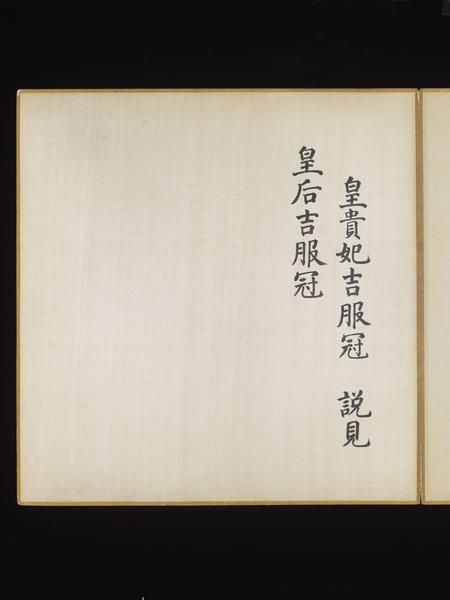 皇貴妃吉服冠 說見
皇后吉服冠